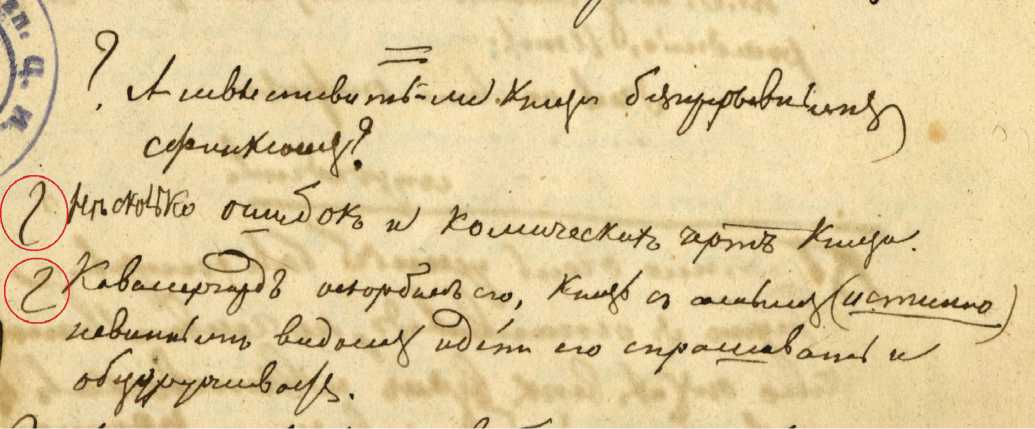 ? А не вывести ли Князя беспрерывным
сфинксом?
Нѣсколько ошибокъ и комическихъ чертъ Князя.
Кавалергардъ оскорбилъ его, Князь съ самымъ (истинно)
невиннымъ видомъ идетъ его спрашивать и
обезоруживаетъ.